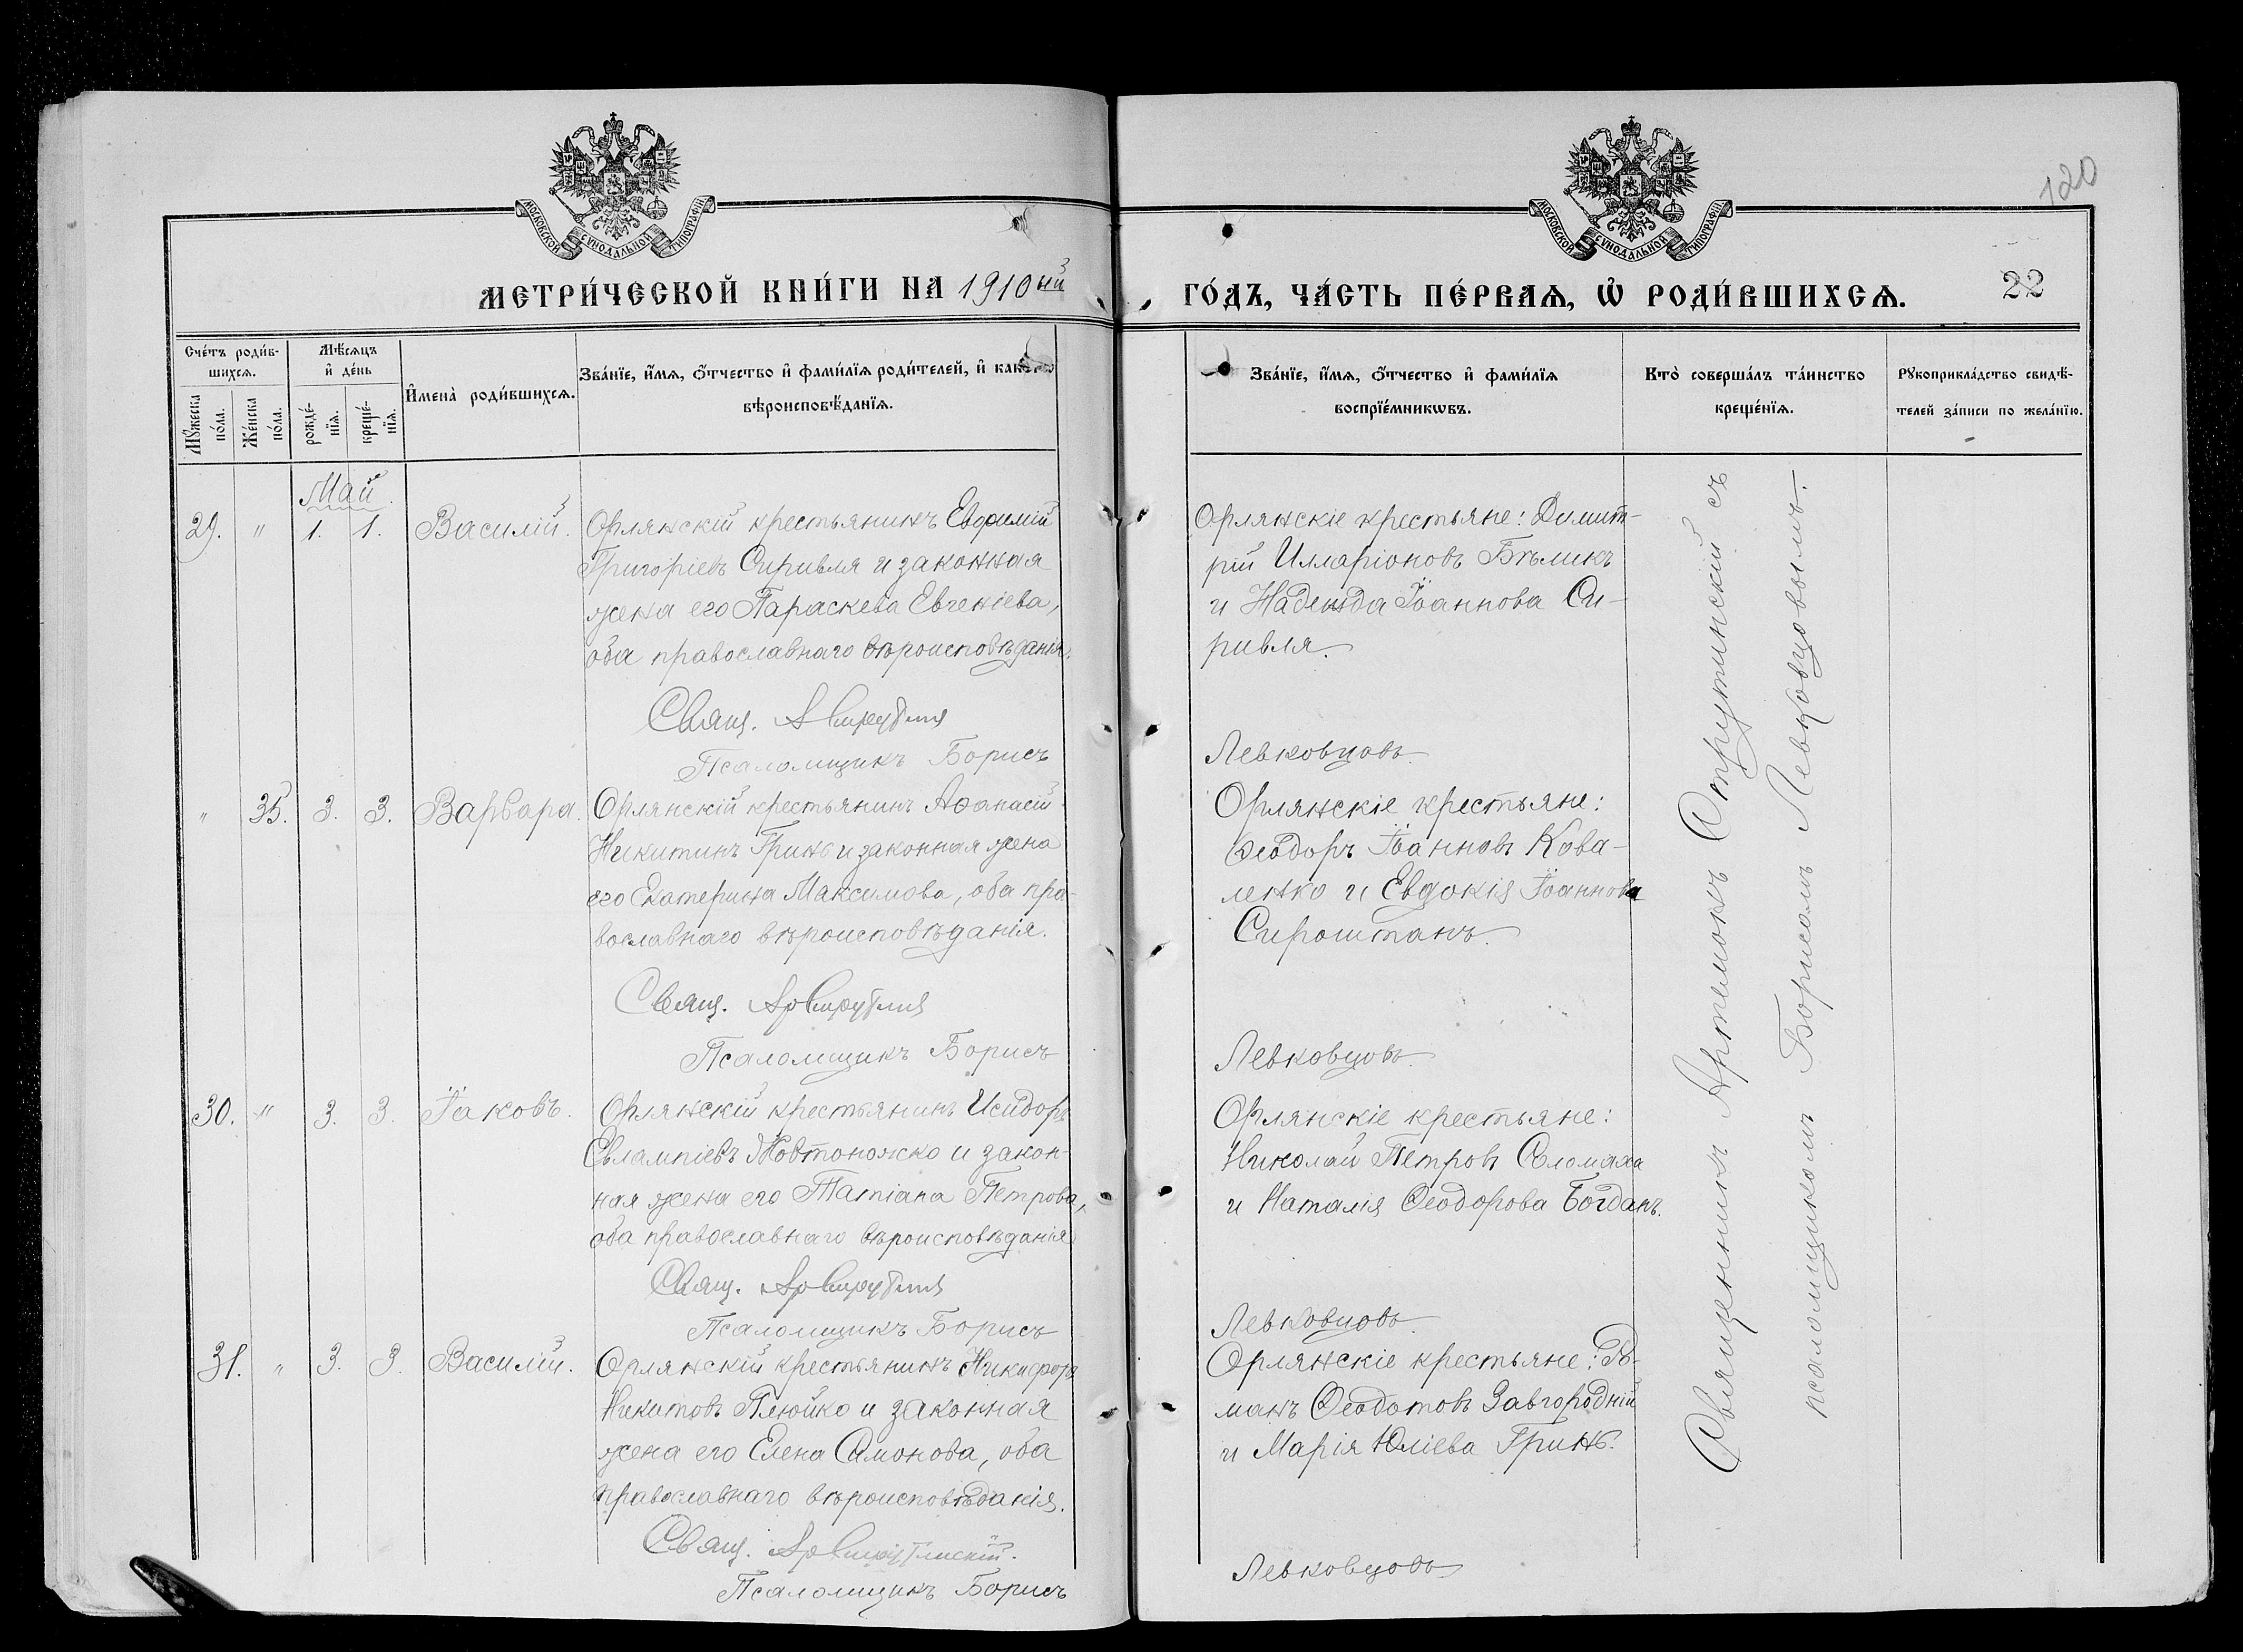 120
МОСКОВСКОЙ СѴНОДАЛЬНОЙ ТИПОГРАФІИ
МОСКОВСКОЙ СѴНОДАЛЬНОЙ ТИПОГРАФІИ
МЕТРИ́ЧЕСКОЙ КНИ́ГИ НА 1910ый
ГО́ДЪ, ЧА́СТЬ ПЕ́РВАѦ, Ѡ҆ РОДИ́ВШИХСѦ.
22
Сче́тъ роди́в-
шихсѧ.
Мꙋ́жеска по́ла.
Же́нска по́ла.
Мѣ́сѧцъ
и҆ де́нь
рожде́-
нїѧ.
креще́-
нїѧ.
И҆мена̀ роди́вшихсѧ.
Зва́нїе, и҆́мѧ, ѻ҆́тчество и҆ фами́лїѧ роди́телей, и҆ како́гѡ
вѣроисповѣ́данїѧ.
Зва́нїе, и҆́мѧ, ѻ҆́тчество и҆ фами́лїѧ
воспрїе́мникѡвъ.
Кто̀ соверша́лъ та́инство
креще́нїѧ.
Рꙋкоприкла́дство свидѣ́-
телей за́писи по жела́нїю.
Май.
29. " 1. 1. Василій.
Орлянскій крестьянинъ Евфимій
Григоріевъ Сиривля и законная
жена его Параскева Евгеніева,
оба православнаго вѣроисповѣданія.
Свящ.
Псаломщикъ Борисъ
Орлянскіе крестьяне: Димит-
рій Илларіоновъ Бѣликъ
и Надежда Іоаннова Си-
ривля.
Левковцовъ.
" 35. 3. 3. Варвара.
Орлянскій крестьянинъ Аѳанасій
Никитинъ Гринь и законная жена
его Екатерина Максимова, оба пра-
вославнаго вѣроисповѣданія.
Свящ.
Псаломщикъ Борисъ
Орлянскіе крестьяне:
Ѳеодоръ Іоанновъ Кова-
ленко и Евдокія Іоаннова
Сироштанъ.
Левковцовъ.
30. " 3. 3. Іаковъ.
Орлянскій крестьянинъ Исидоръ
Евлампіевъ Жовтоножко и закон-
ная жена его Татіана Петрова,
оба православнаго вѣроисповѣданія
Свящ.
Псаломщикъ Борисъ
Орлянскіе крестьяне:
Николай Петровъ Соломаха
и Наталія Ѳеодорова Богданъ.
Левковцовъ.
31. " 3. 3. Василій.
Орлянскій крестьянинъ Никифоръ
Никитовъ Плюйко и законная
жена его Елена Самонова, оба
православнаго вѣроисповѣданія.
Свящ.
Псаломщикъ Борисъ
Орлянскіе крестьяне: Ро-
манъ Ѳеодотовъ Завгородній
и Марія Юліева Гринь.
Левковцовъ
Священникъ Артемонъ Струтинскій съ
псаломщикомъ Борисомъ Левковцовымъ.